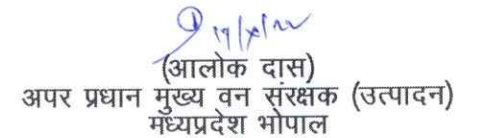 17/8/22
(आलोक दास)
अपर प्रधान मुख्य वन संरक्षक (उत्पादन)
मध्यप्रदेश भोपाल